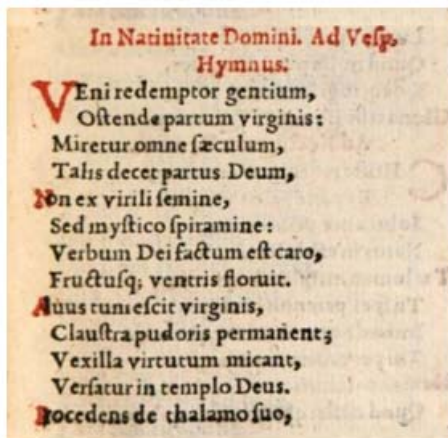 In Natiuitate Domini. Ad Veſp.
Hymnus.
VEni redemptor gentium,
Oſtende partum virginis:
Miretur omne ſæculum,
Talis decet partus Deum,
Non ex virili ſemine,
Sed myſtico ſpiramine:
Verbum Dei factum eſt caro,
Fructuſq; ventris floruit.
Aluus tumeſcit virginis,
Clauſtra pudoris permanent;
Vexilla virtutum micant,
Verſatur in templo Deus.
Procedens de thalamo ſuo,